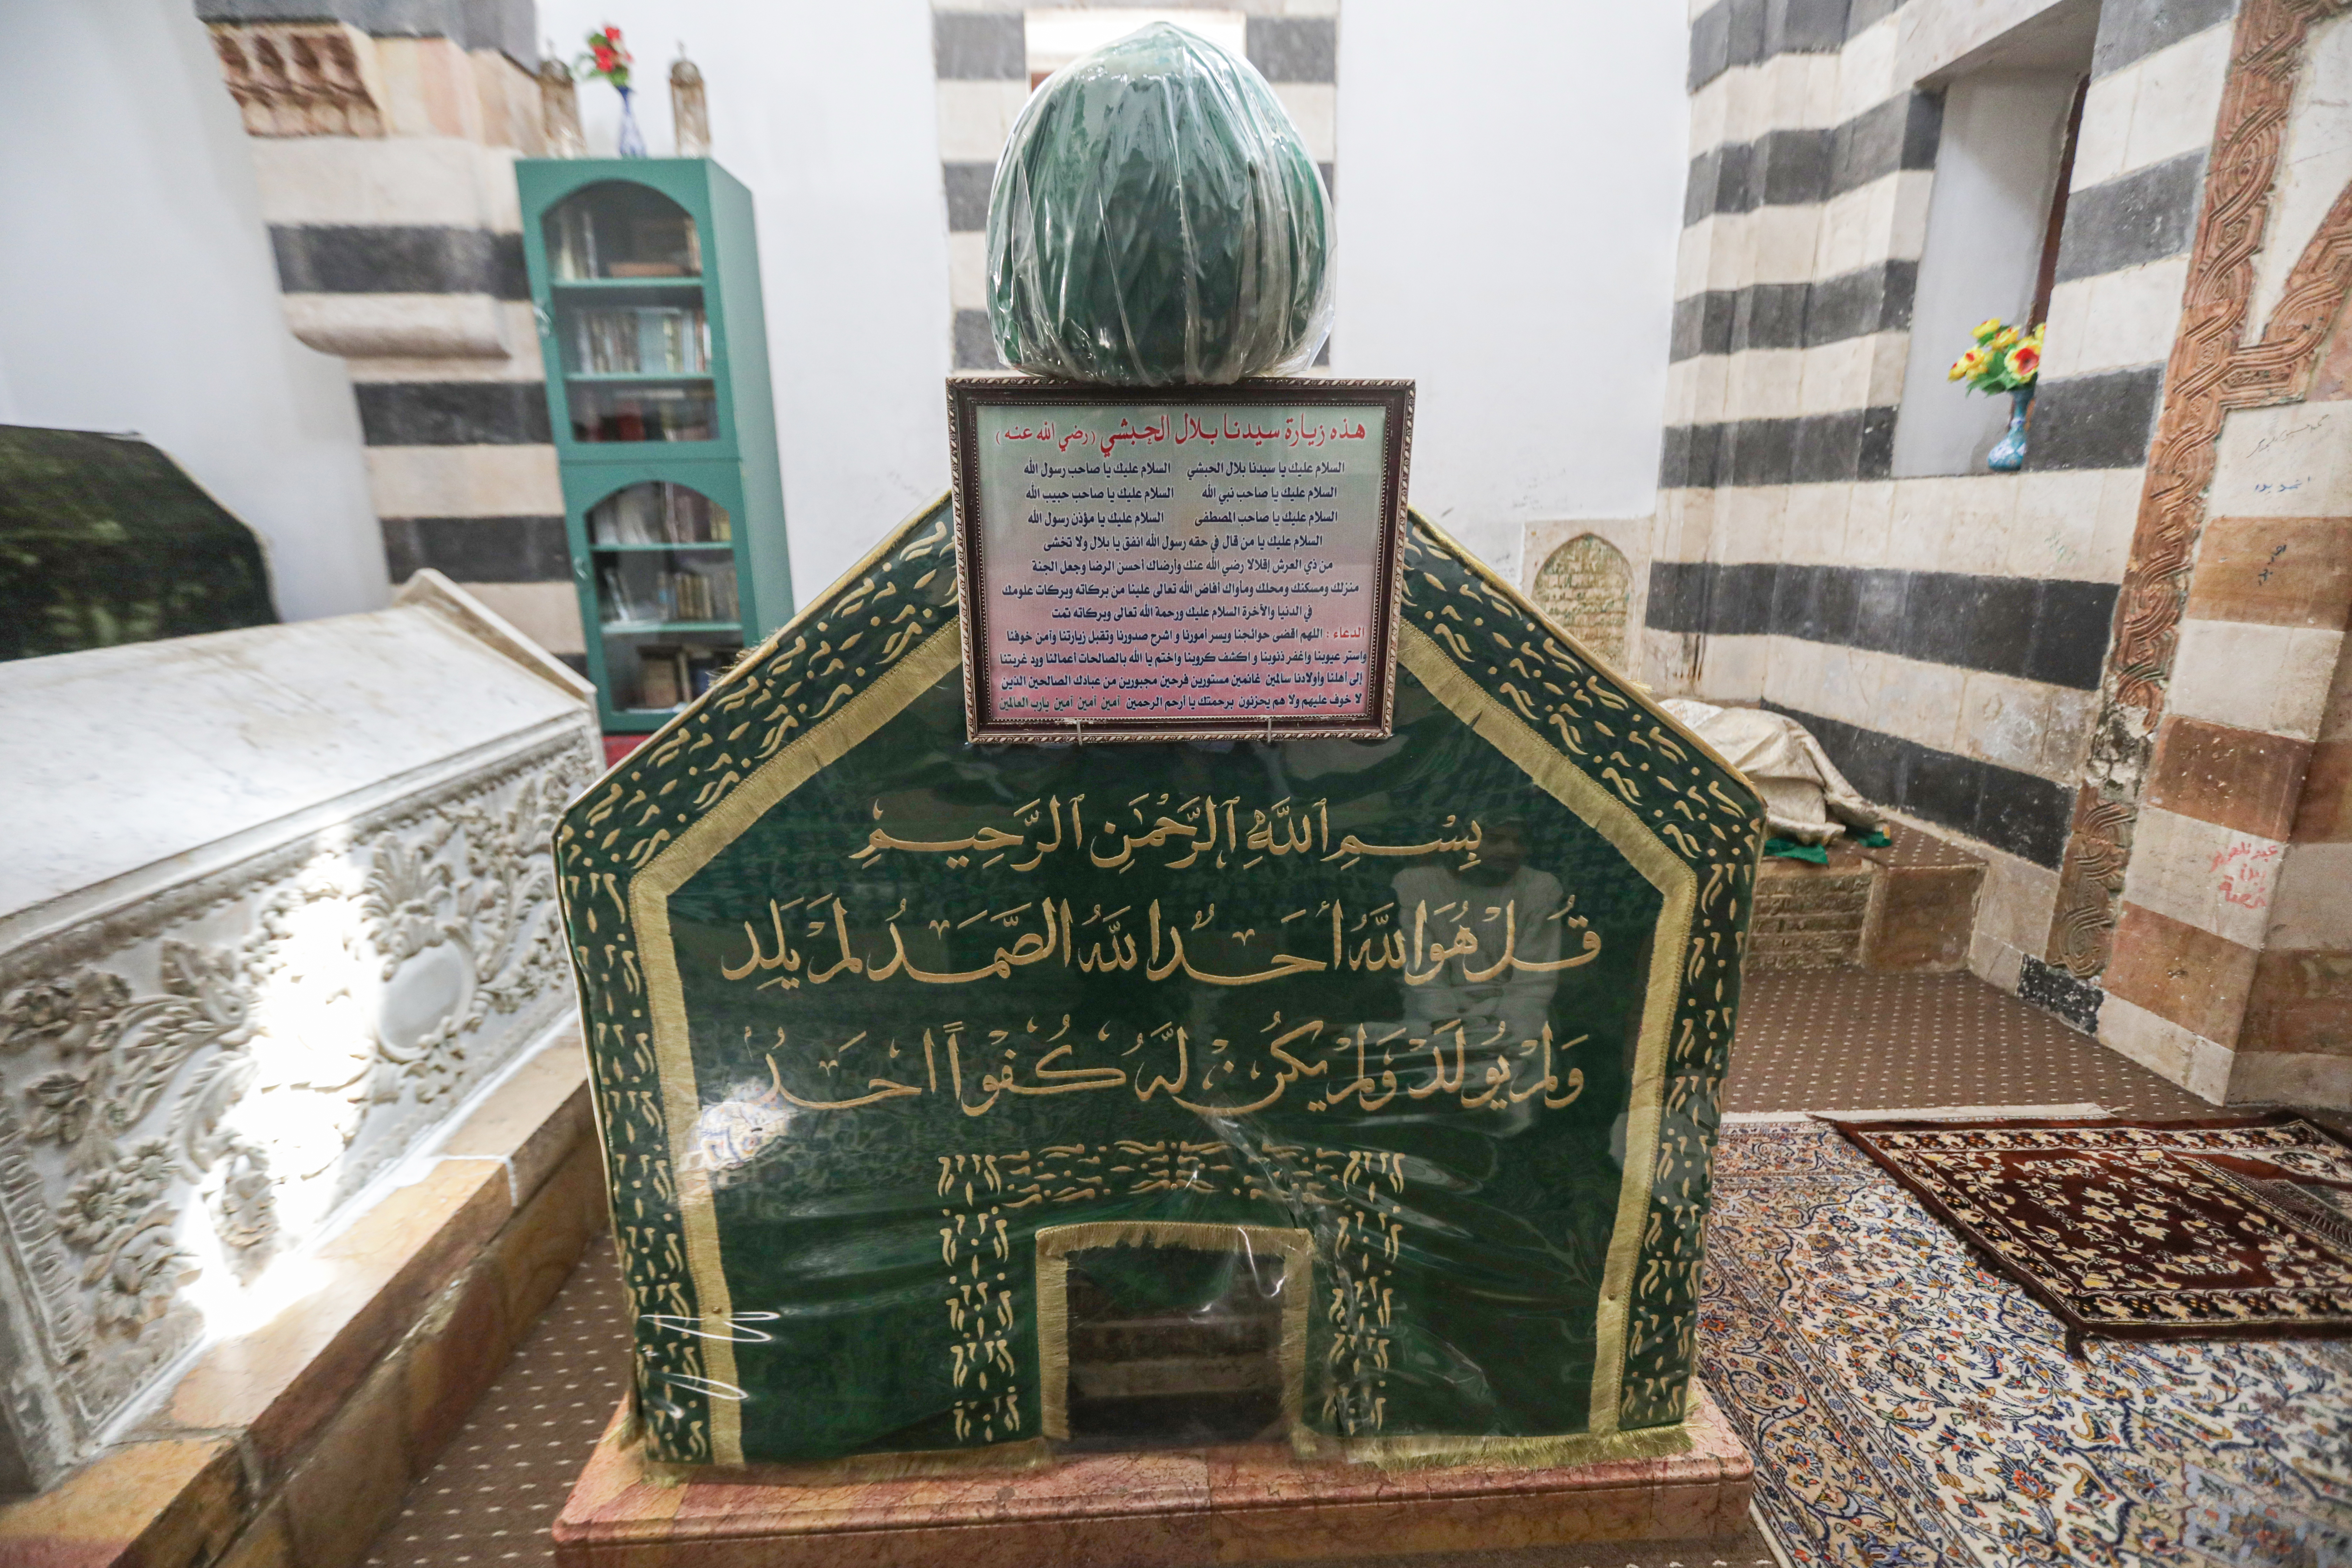 هذه زيارة سيدنا بلال الحبشي (رضي الله عنه)
السلام عليك يا سيدنا بلال الحبشي السلام عليك يا صاحب رسول الله
السلام عليك يا صاحب نبي الله السلام عليك يا صاحب حبيب الله
السلام عليك يا صاحب المصطفى السلام عليك يا مؤذن رسول الله
السلام عليك يا من قال في حقه رسول الله انفق يا بلال ولا تخشى
من ذي العرش إقلالا رضي الله عنك وأرضاك أحسن الرضا وجعل الجنة
منزلك ومسكنك ومحلك ومأواك أفاض الله تعالى علينا من بركاته وبركات علومك
في الدنيا والآخرة السلام عليك ورحمة الله تعالى وبركاته تمت
الدعاء : اللهم اقضى حوائجنا ويسر أمورنا و اشرح صدورنا وتقبل زيارتنا وأمن خوفنا
واستر عيوبنا واغفر ذنوبنا و اكشف كروبنا واختم يا الله بالصالحات أعمالنا ورد غربتنا
إلى أهلنا وأولادنا سالمين غانمين مستورين فرحين مجبورين من عبادك الصالحين الذين
لا خوف عليهم ولا هم يحزنون برحمتك يا أرحم الرحمين آمين آمين آمين يارب العالمين
بِسْمِ ٱللَّهِ ٱلرَّحْمَنِ ٱلرَّحِيمِ
قُلْ هُوَ اللَّهُ أَحَدٌ اللَّهُ الصَّمَدُ لَمْ يَلِد
وَلَمْ يُولَدْ وَلَمْ يَكُنْ لَهُ كُفُواً احَدٌ